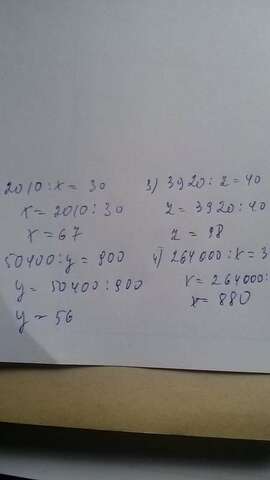 2010:x = 30
x = 2010:30
x = 67
50400:y = 900
y = 50400:900
y = 56
3) 3920:z = 40
z = 3920:40
z = 98
4) 264000:x = 3
x = 264000:
x = 880